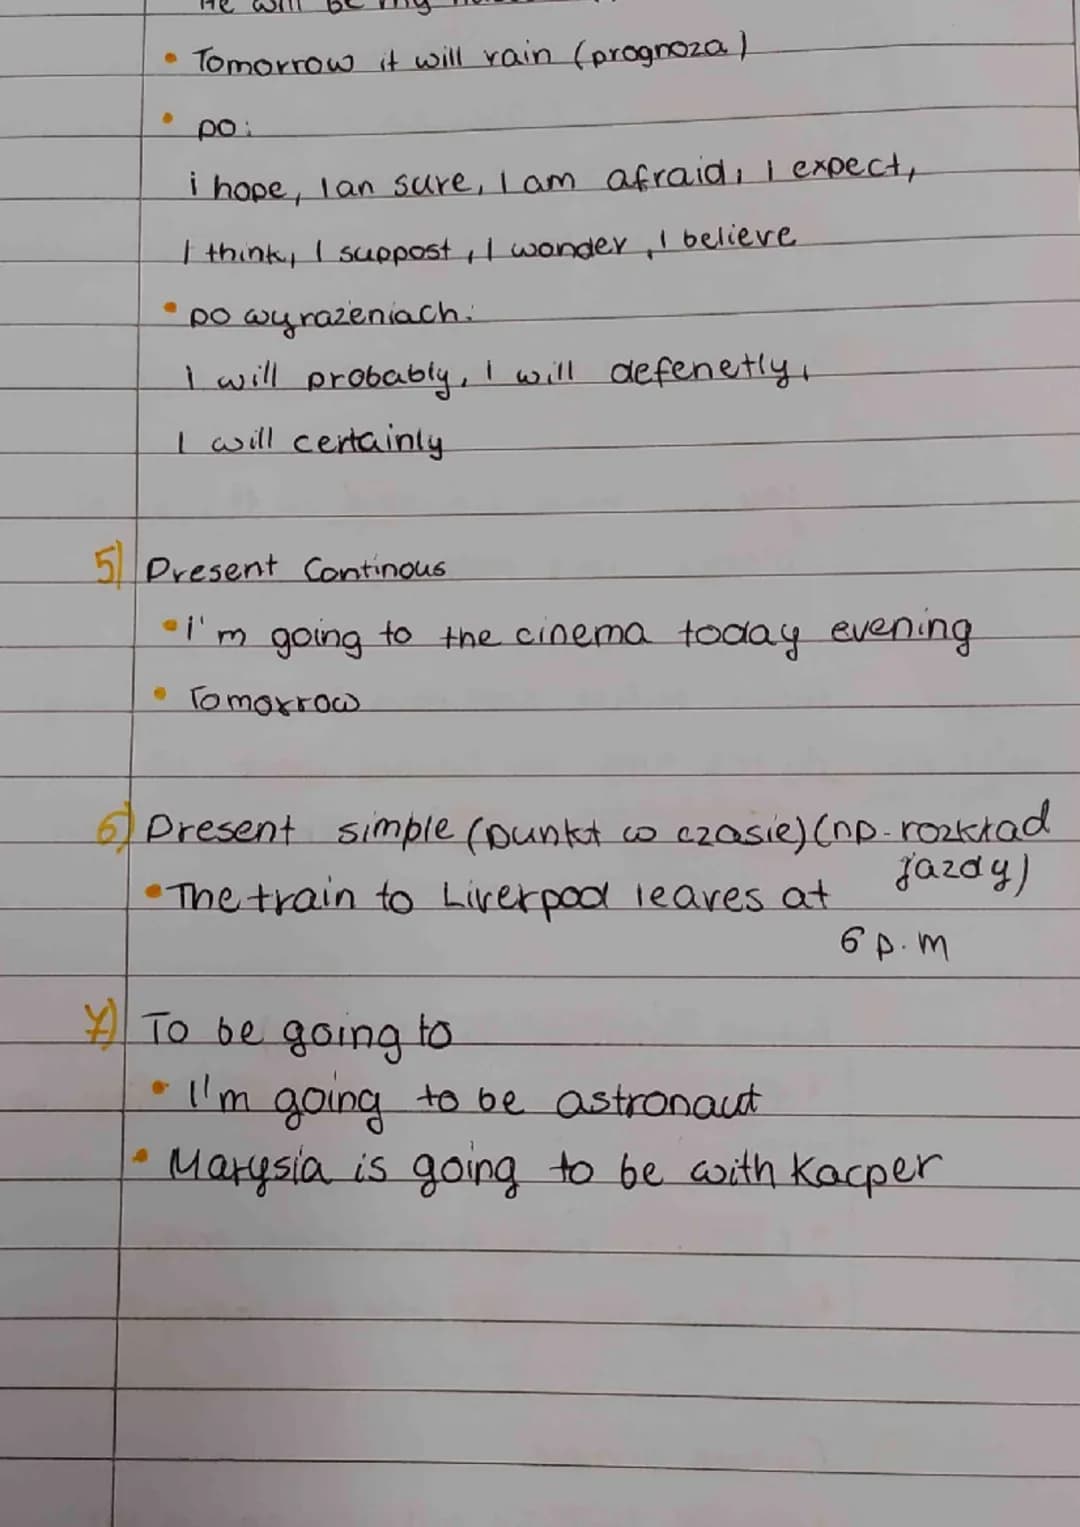 He will be my
• Tomorrow it will rain (prognoza)
• po:
i hope, I an sure, I am afraid, I expect,
I think, I suppost, I wonder, I believe
• po wyrażeniach:
I will probably, I will defenetly,
I will certainly
5) Present Continous
• I'm going to the cinema today evening
• Tomorrow
6) Present simple (punkt w czasie) (np. rozkład jazdy)
• The train to Liverpool leaves at 6 p.m
7) To be going to
• I'm going to be astronaut
• Marysia is going to be with Kacper